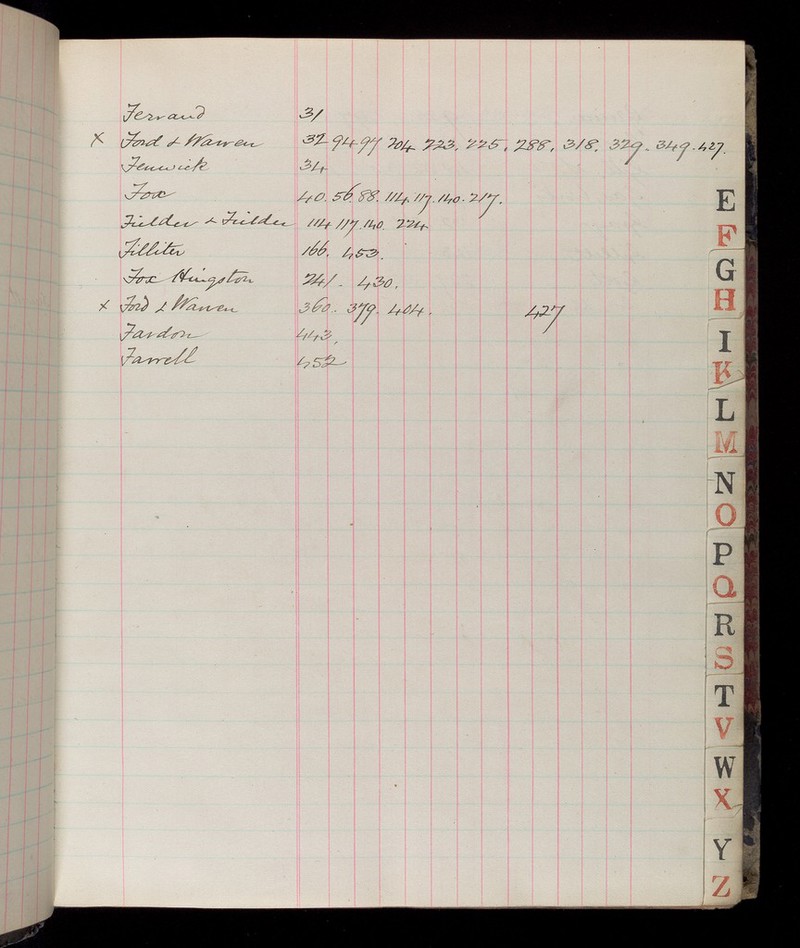 Ferrand 31
x Ford & Warren 32 94 97 204 223. 225. 288. 318. 329. 349. 427.
Fenwick 34
Fox 40. 56. 88. 114. 117. 140. 217.
Fielder & Fielder 114 117. 140. 224
Filliter 166. 453.
Fox Hingston 241. 430.
x Ford & Warren 360. 379. 404. 427
Fardon 443.
Farrell 452
E
F
G
H
I
K
L
M
N
O
P
Q
R
S
T
V
W
X
Y
Z